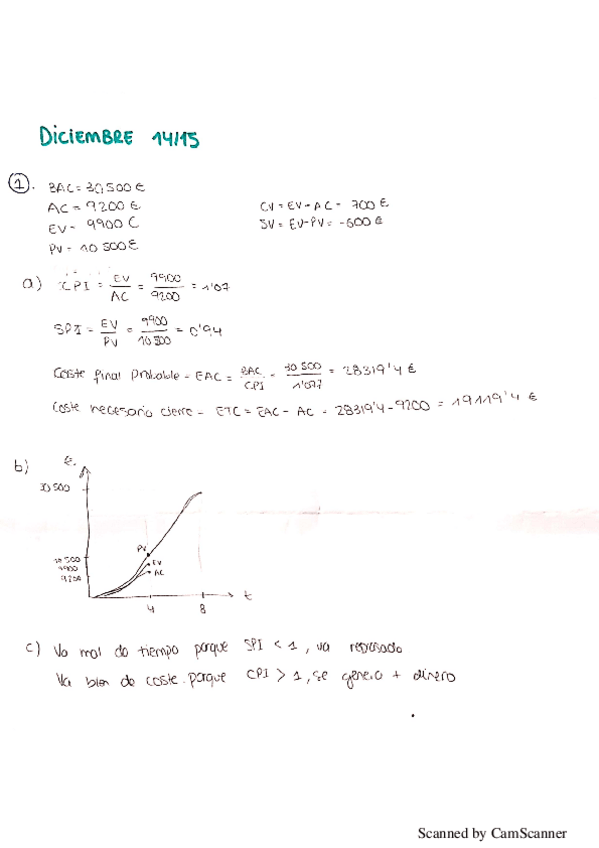 DICIEMBRE 14/15
1. BAC = 30,500 €
AC = 9200 € CV = EV - AC = 700 €
EV = 9900 € SV = EV - PV = -600 €
PV = 10 500 €
a) CPI = EV / AC = 9900 / 9200 = 1'07
SPI = EV / PV = 9900 / 10 500 = 0'94
Coste final probable = EAC = BAC / CPI = 30 500 / 1'077 = 28319'4 €
Coste necesario cierre = ETC = EAC - AC = 28319'4 - 9200 = 19119'4 €
b) €
30 500
10 500
9900
9200
PV
EV
AC
4 8 t
c) Va mal de tiempo porque SPI < 1, va retrasado
Va bien de coste porque CPI > 1, se genero + dinero
Scanned by CamScanner